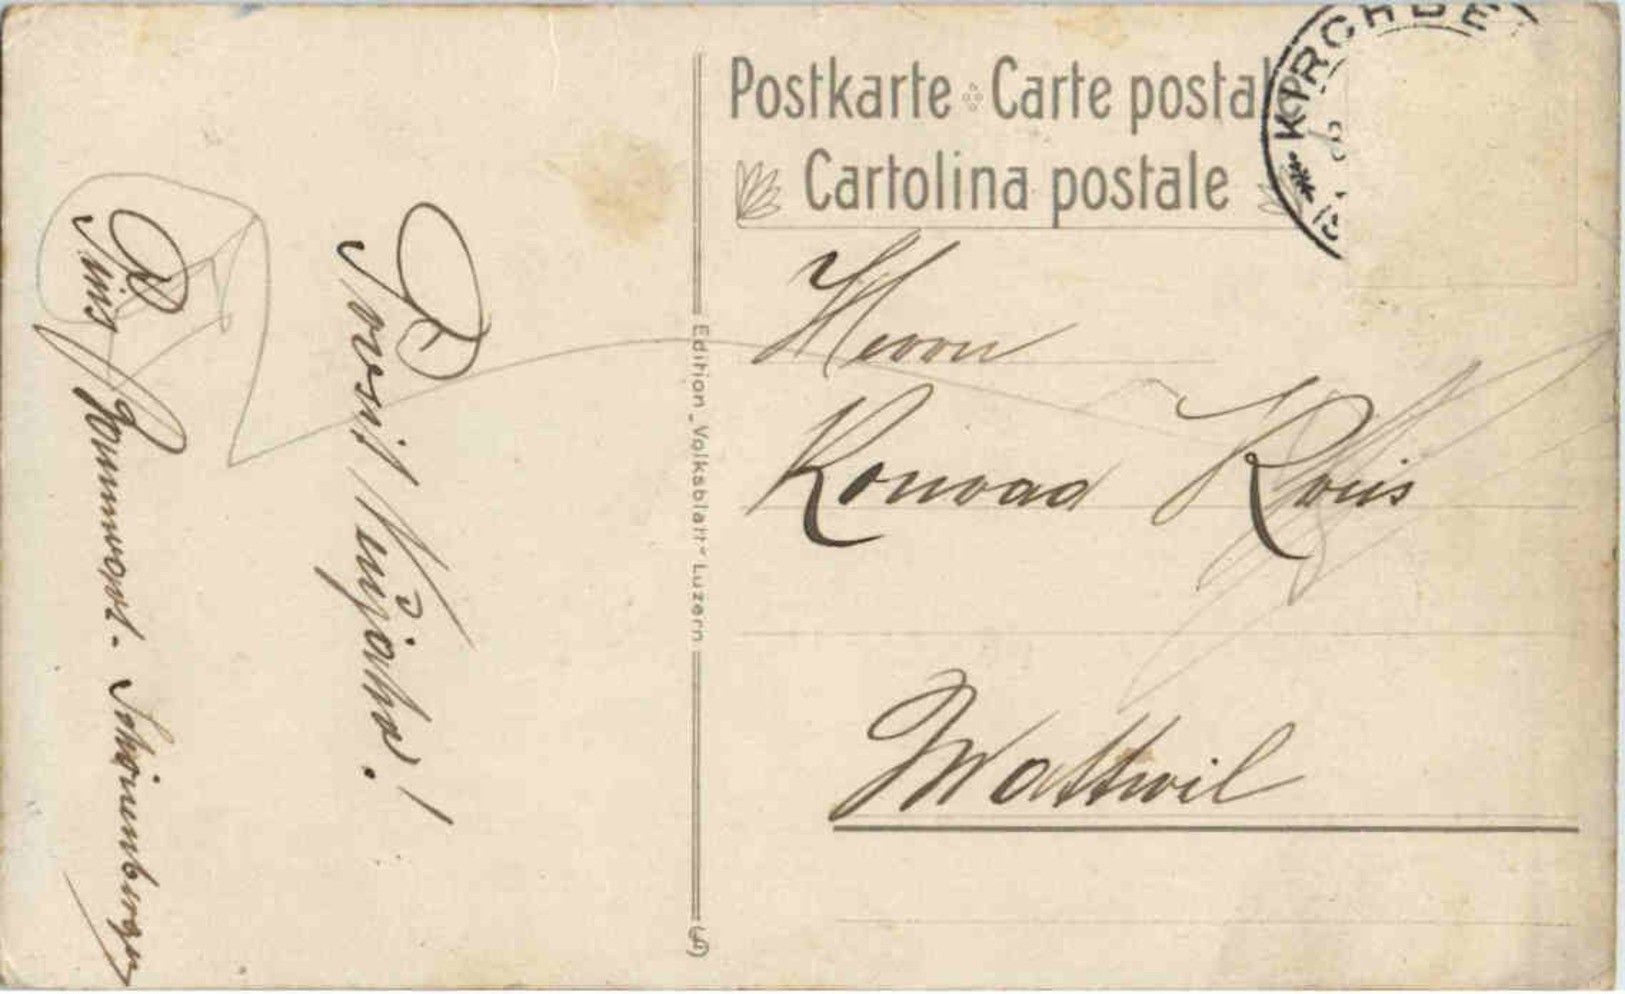 Postkarte Carte postale
Cartolina postale
KIRCHBE
Herrn
Konrad
Wattwil
Edition „Volksblatt“ Luzern
Prosit Neujahr!
Pius Schönenberger